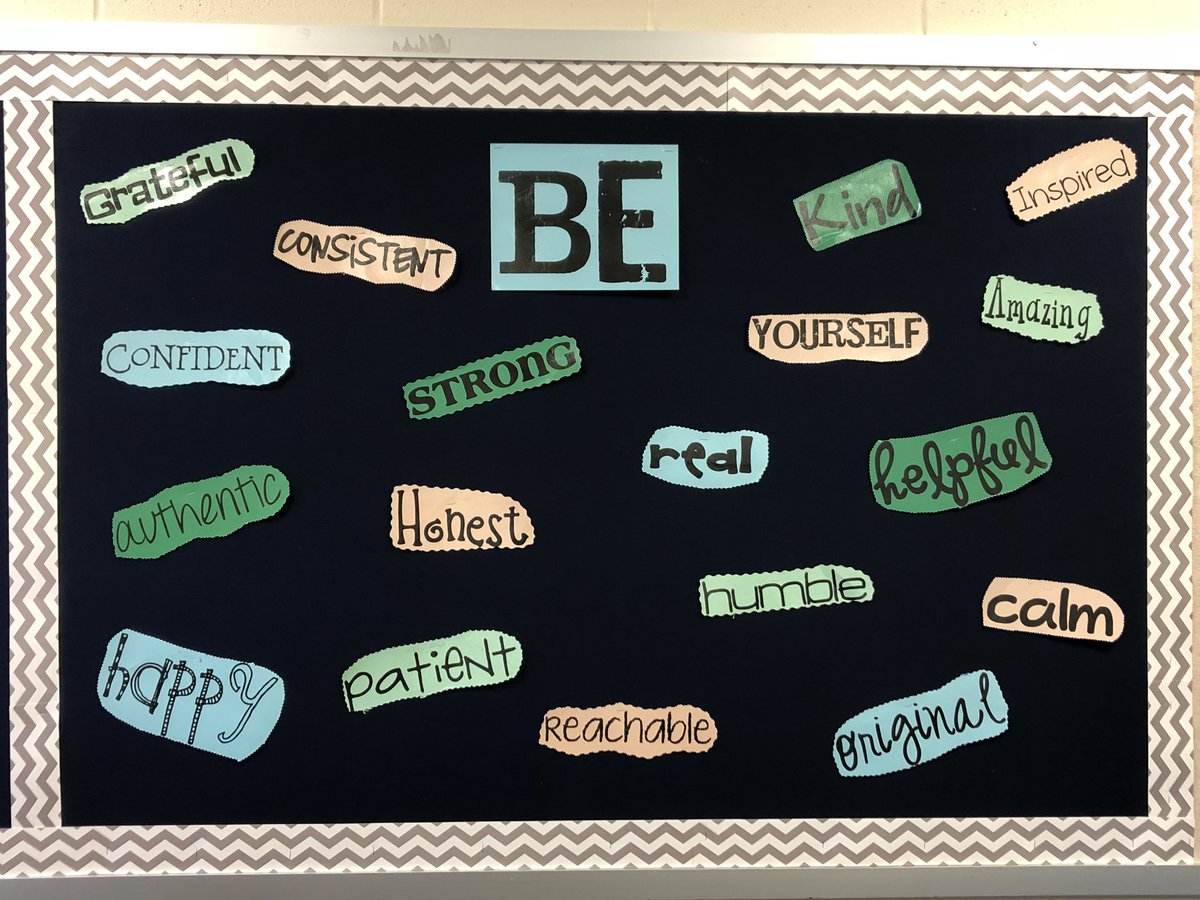 BE
Grateful
Kind
Inspired
CONSiSTENT
Amazing
CONFIDENT
STRONG
YOURSELF
real
helpful
authentic
Honest
humble
calm
happy
patiENT
REachable
original